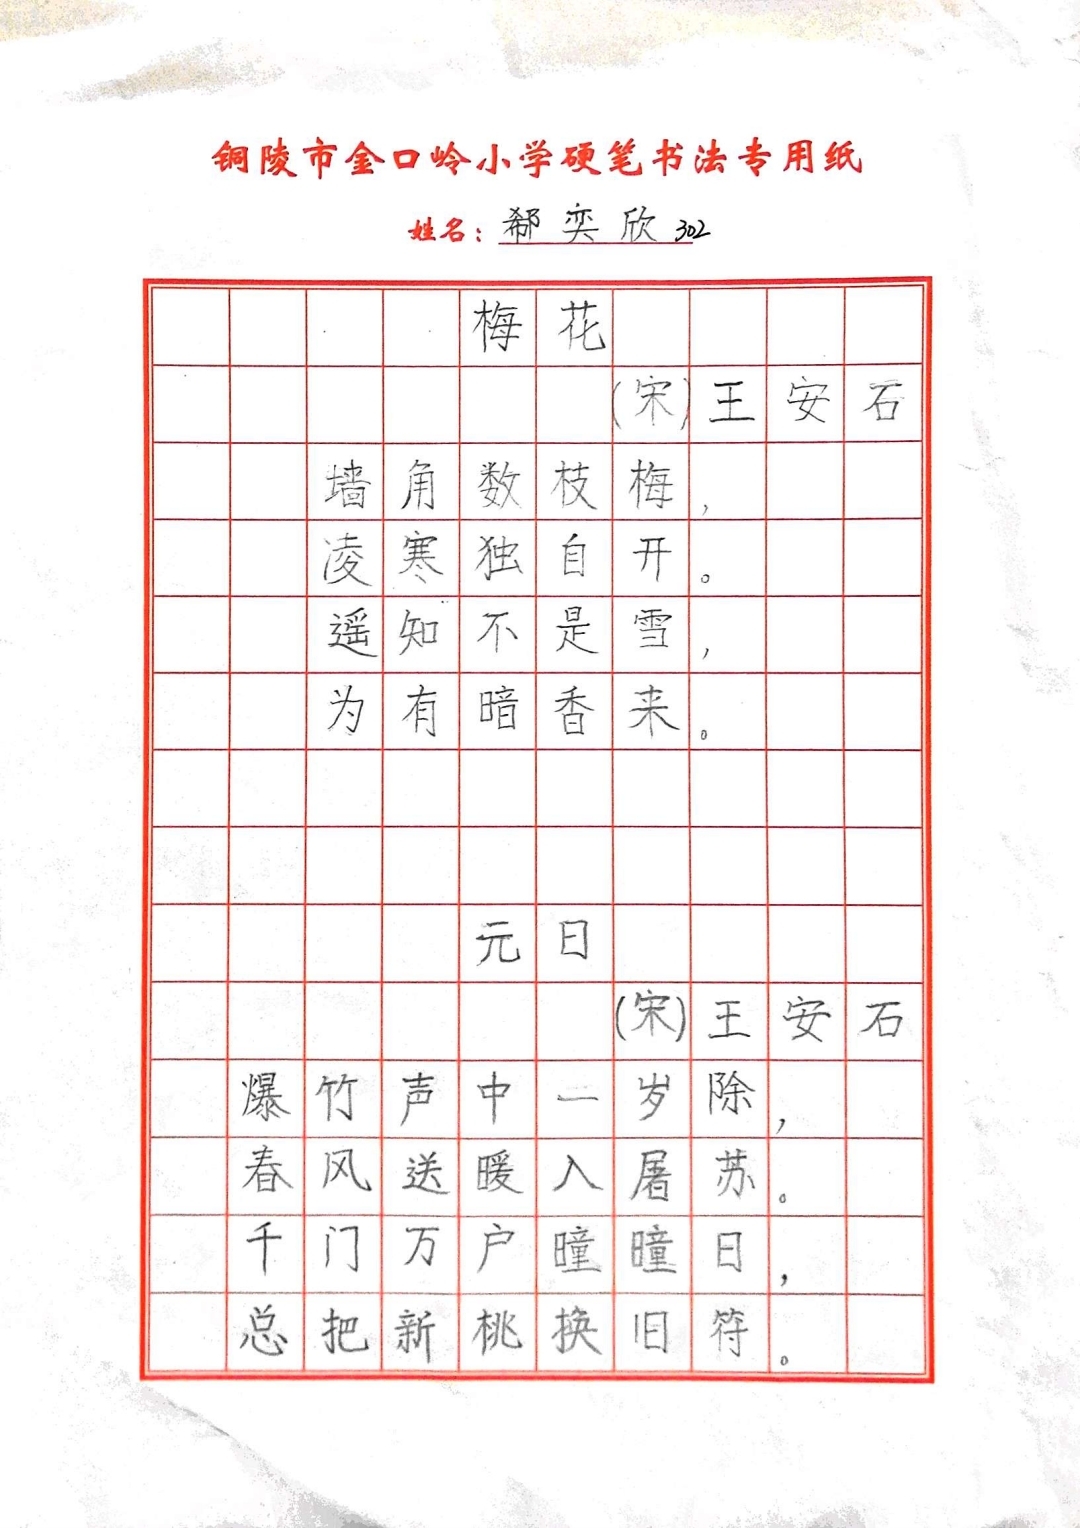 铜陵市金口岭小学硬笔书法专用纸
姓名：郗奕欣302
梅花
(宋)王安石
墙角数枝梅，
凌寒独自开。
遥知不是雪，
为有暗香来。
元日
(宋)王安石
爆竹声中一岁除，
春风送暖入屠苏。
千门万户曈曈日，
总把新桃换旧符。